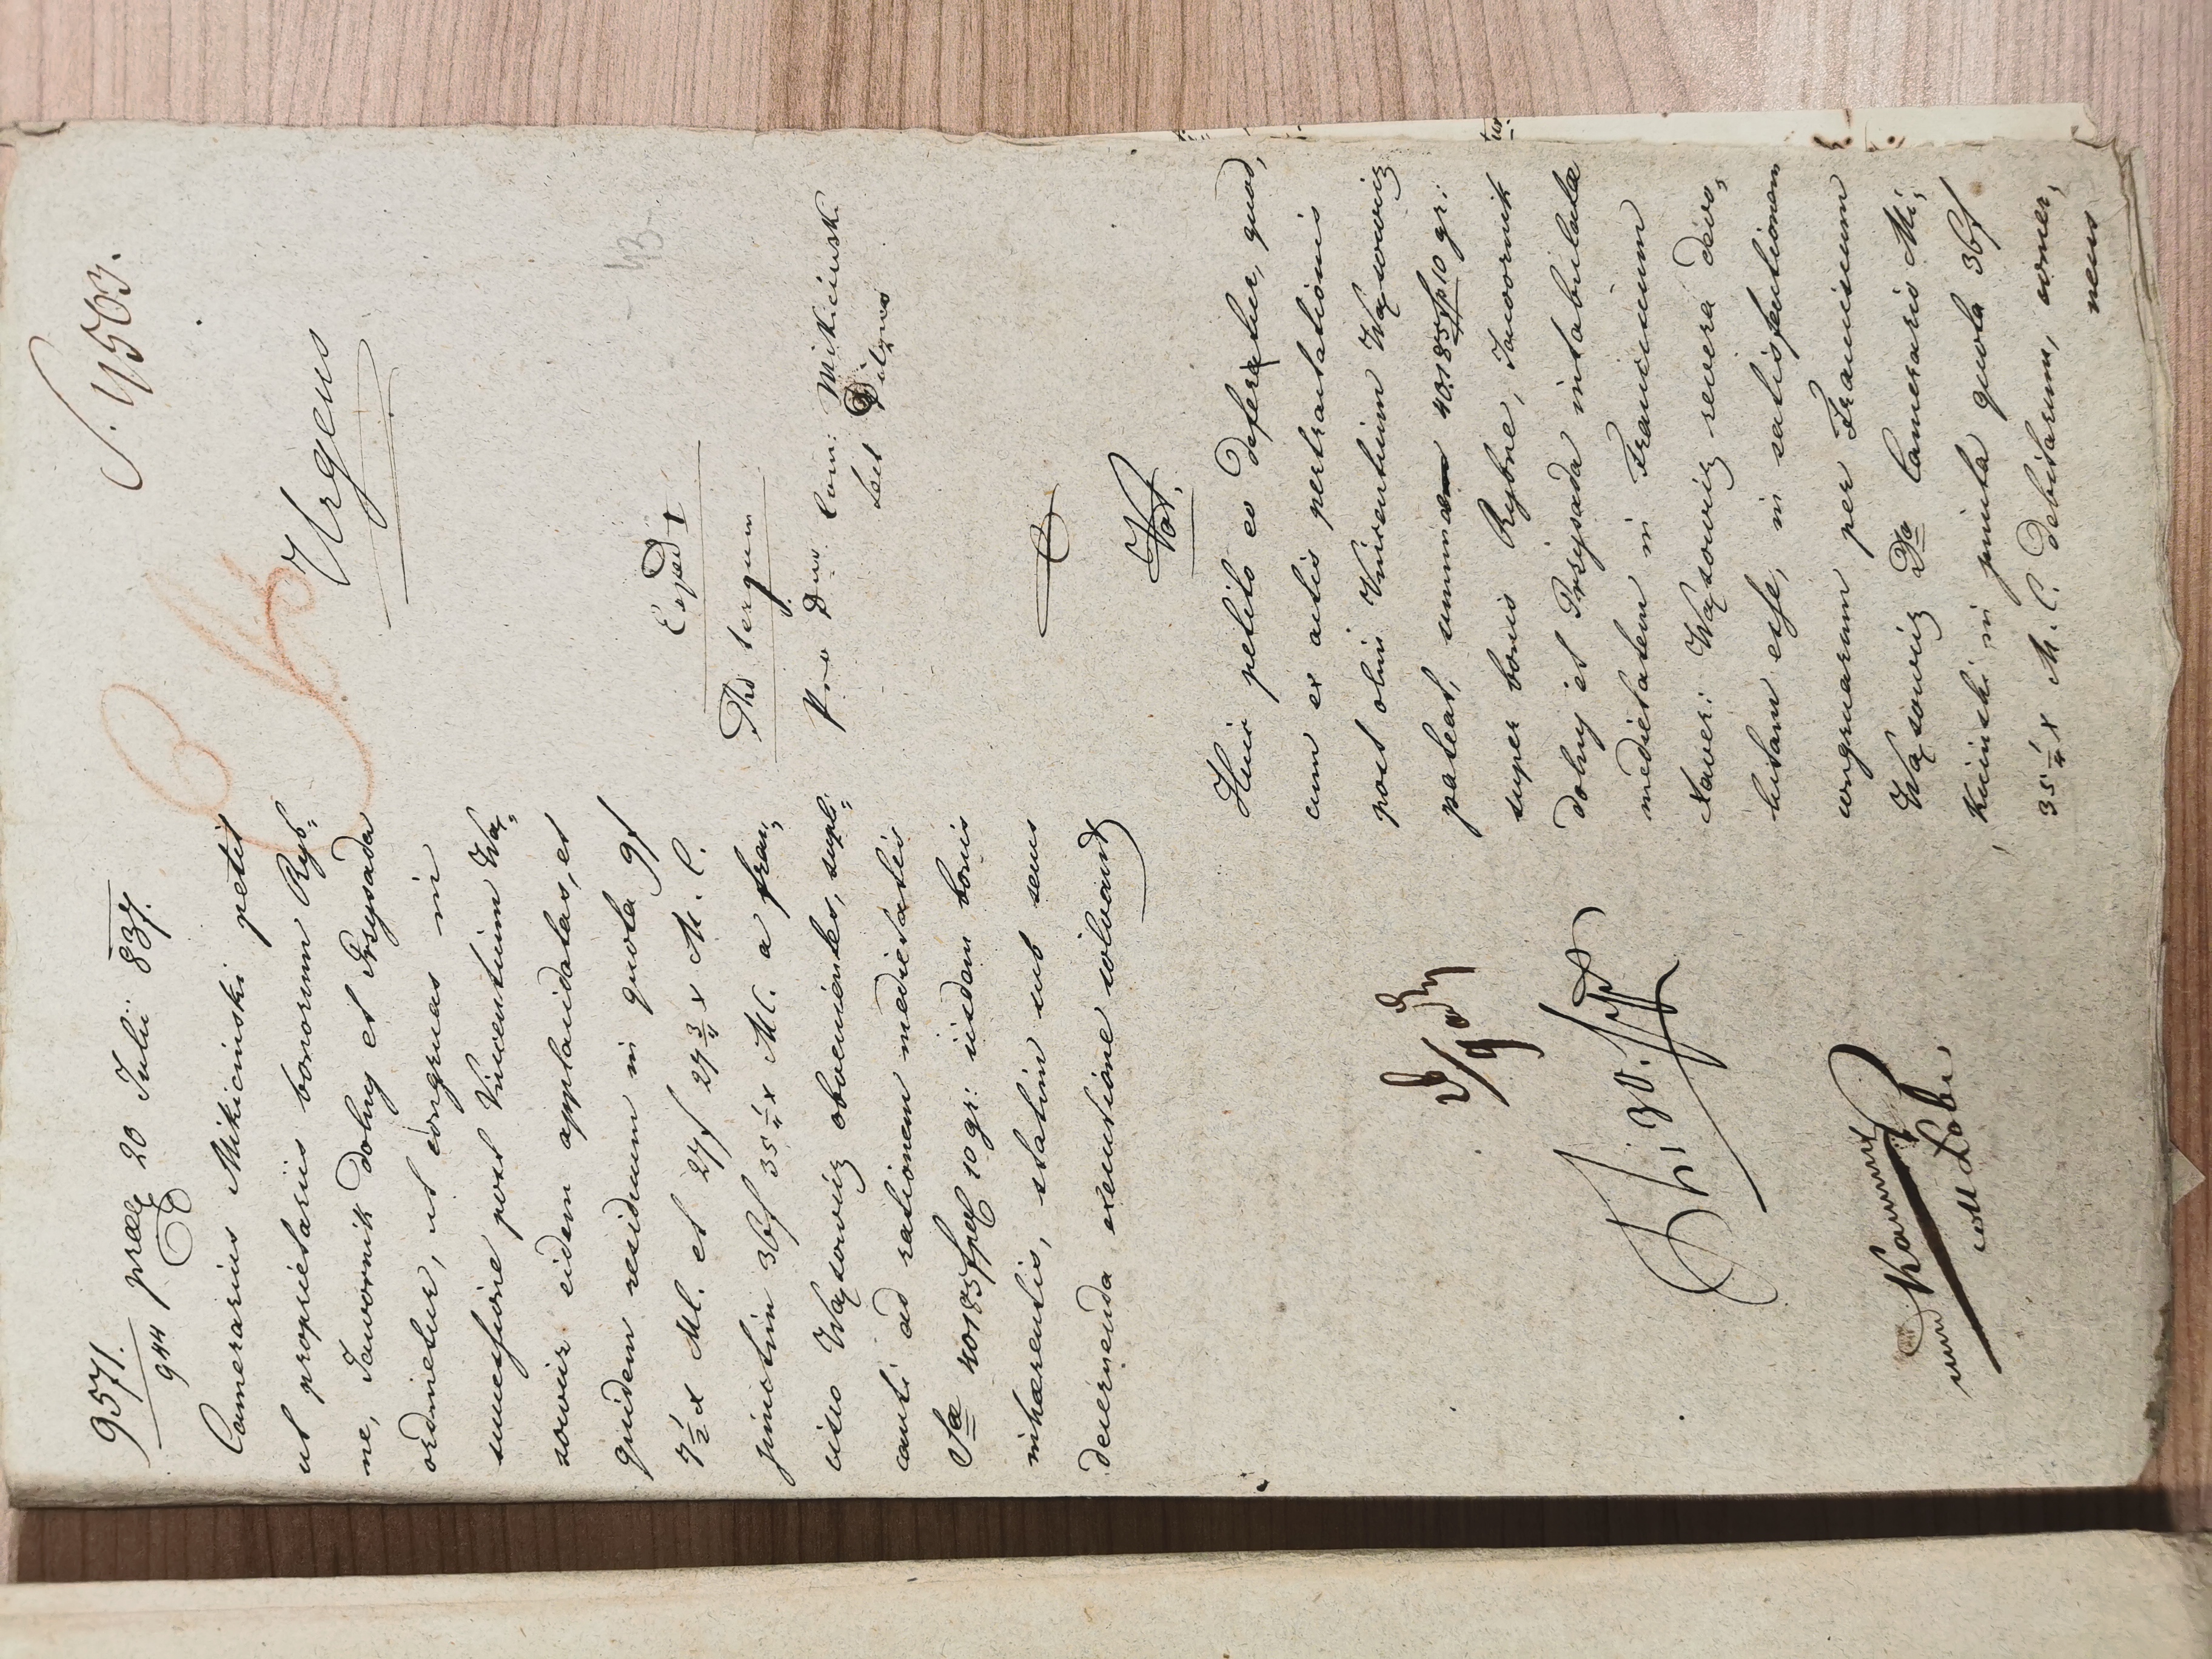 S. 4503.
9571. præs 20 Julii 837.
944
Urgens
Camerarius Mikicinski petit
ut proprietariis bonorum Ryb=
ne, Jawornik dolny et Przysada
ordinetur, ut congruas in
successione post Vincentium Wą=
sowicz eidem applauidatas, et
quidem residuum in quota 9f
7½x M.C. et 27f 27¾x M.C.
junctim 36f 35¼x M.C. a fran=
cisco Wąsowicz obvenientes, supli=
canti ad rationem medietatis
Sæ 40185 fpol 10 gr: iisdem bonis
inhærentis, statim sub sens
decernenda executione solvant
Exped
Ad tergum
Pro Dno Cam: Mikicinski
Not.
Huic petito eo deferetur, quod,
cum ex actis pertractationis
post olim Vincentium Wąsowicz
pateat, summæ 40185 fp 10 gr:
super bonis Rybne, Jawornik
dolny et Przysada intabulatæ
medietatem in Franciscum
Xaver: Wąsowicz revera devo=
lutam esse, in satisfactionem
congruarum per Franciscum
Wąsowicz Do Camerario Mi=
kicinski in juncta quota 36f
35¼x M.C. debitarum, concer=
nens